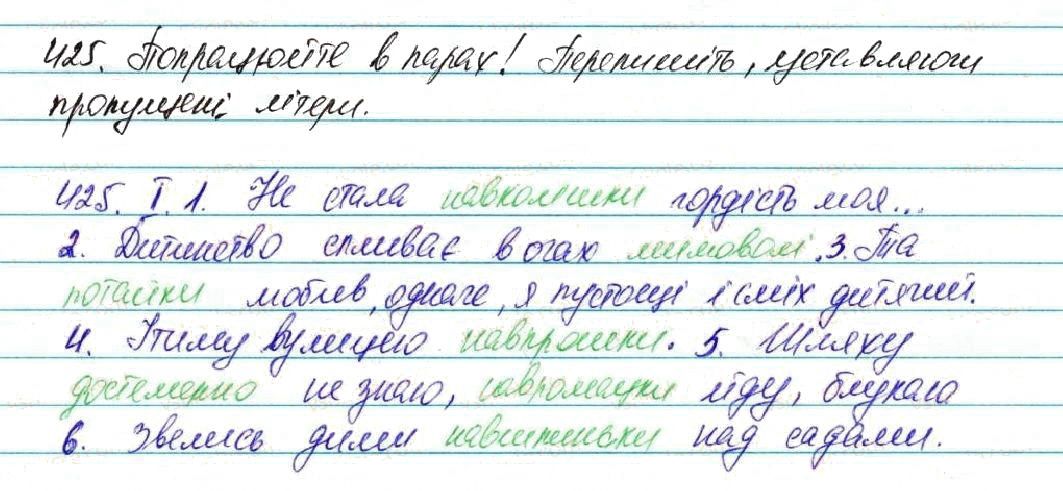 425. Попрацюйте в парах! Перепишіть, уставляючи
пропущені літери.
425. I. 1. Не стала навколішки гордість моя...
2. Дитинство спливає в очах мимоволі. 3. Та
потайки любив, одначе, я пустощі і сміх дитячий.
4. Ітиму вулицею навпрошки. 5. Шляху
достеменно не знаю, навромацки йду, блукаю
6. Звелись дими навшпиньки над садами.